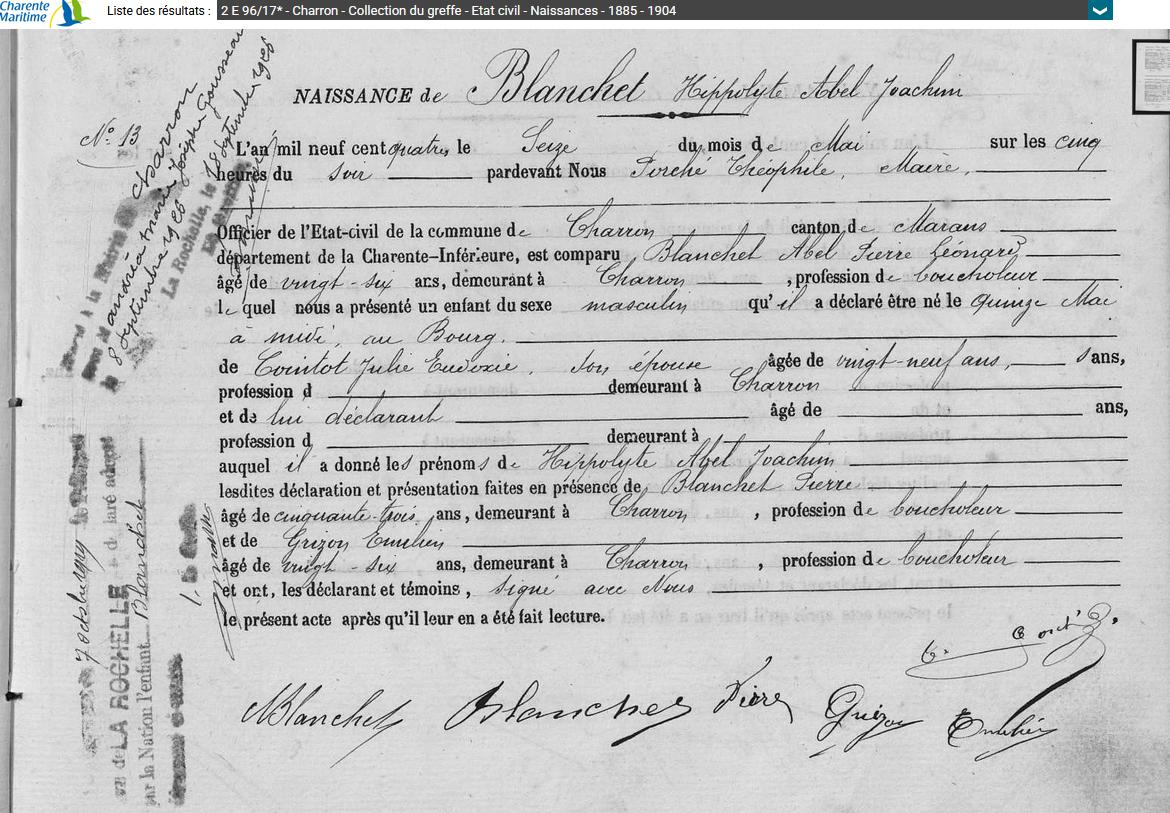 Charente Maritime
Liste des résultats : 2 E 96/17* - Charron - Collection du greffe - Etat civil - Naissances - 1885 - 1904
NAISSANCE de Blanchet Hippolyte Abel Joachim
N° 13
L'an mil neuf cent quatre le Seize du mois de Mai sur les cinq
heures du soir pardevant Nous Porché Théophile, Maire,
Officier de l'Etat-civil de la commune de Charron canton de Marans
département de la Charente-Inférieure, est comparu Blanchet Abel Pierre Léonard
âgé de vingt-six ans, demeurant à Charron, profession de boucholeur
lequel nous a présenté un enfant du sexe masculin qu'il a déclaré être né le quinze Mai
à midi, au Bourg.
de Cointot Julie Eudoxie, son épouse âgée de vingt-neuf ans, ans,
profession d demeurant à Charron
et de lui déclarant âgé de ans,
profession d demeurant à
auquel il a donné les prénoms de Hippolyte Abel Joachim
lesdites déclaration et présentation faites en présence de Blanchet Pierre
âgé de cinquante-trois ans, demeurant à Charron, profession de boucholeur
et de Grizon Emilien
âgé de vingt-six ans, demeurant à Charron, profession de boucholeur
et ont, les déclarant et témoins, signé avec Nous
le présent acte après qu'il leur en a été fait lecture.
Blanchet Blanchet Pierre Grizon Emilien
Charron
Maria Marie Josèphe Gousseau
8 septembre 1926
La Rochelle, le 18 septembre 1926
LA ROCHELLE
par la Nation l'enfant Blanchet